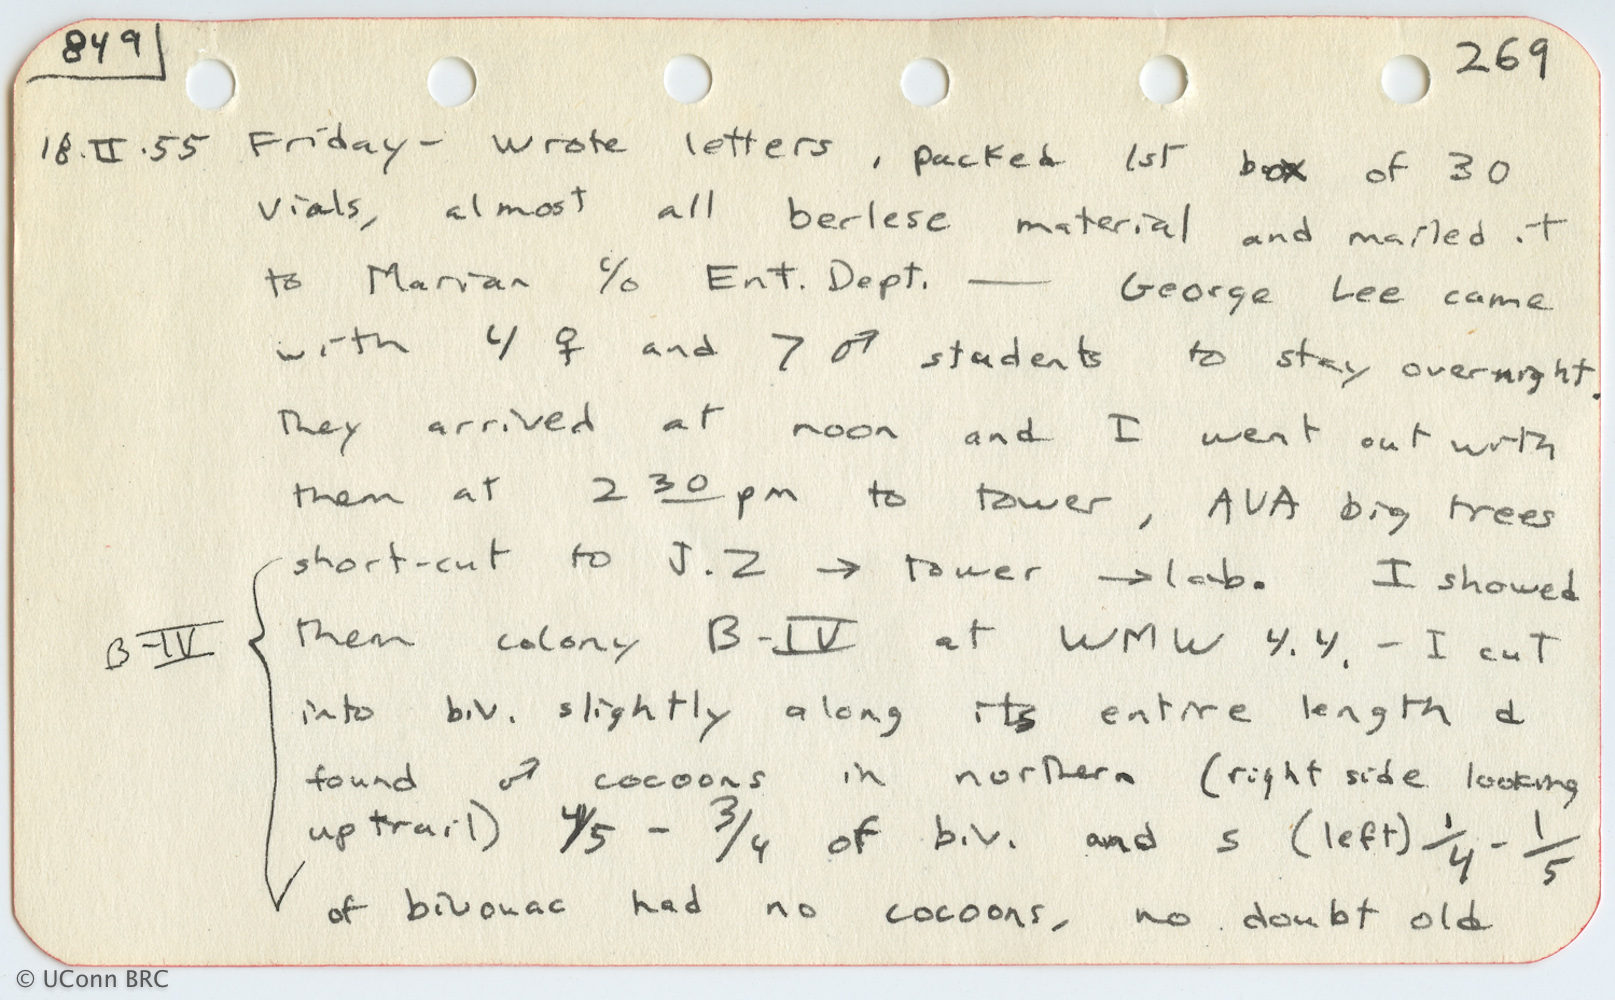 849
269
18.II.55 Friday - Wrote letters, packed 1st box of 30
vials, almost all berlese material and mailed it
to Marian c/o Ent. Dept. — George Lee came
with 4 ♀ and 7 ♂ students to stay overnight.
They arrived at noon and I went out with
them at 2 30 pm to tower, AVA big trees
short-cut to J.Z → tower → lab. I showed
B-IV
them colony B-IV at WMW 4.4. - I cut
into biv. slightly along its entire length &
found ♂ cocoons in northern (right side looking
up trail) 4/5 - 3/4 of biv. and s (left) 1/4 - 1/5
of bivouac had no cocoons, no doubt old
© UConn BRC